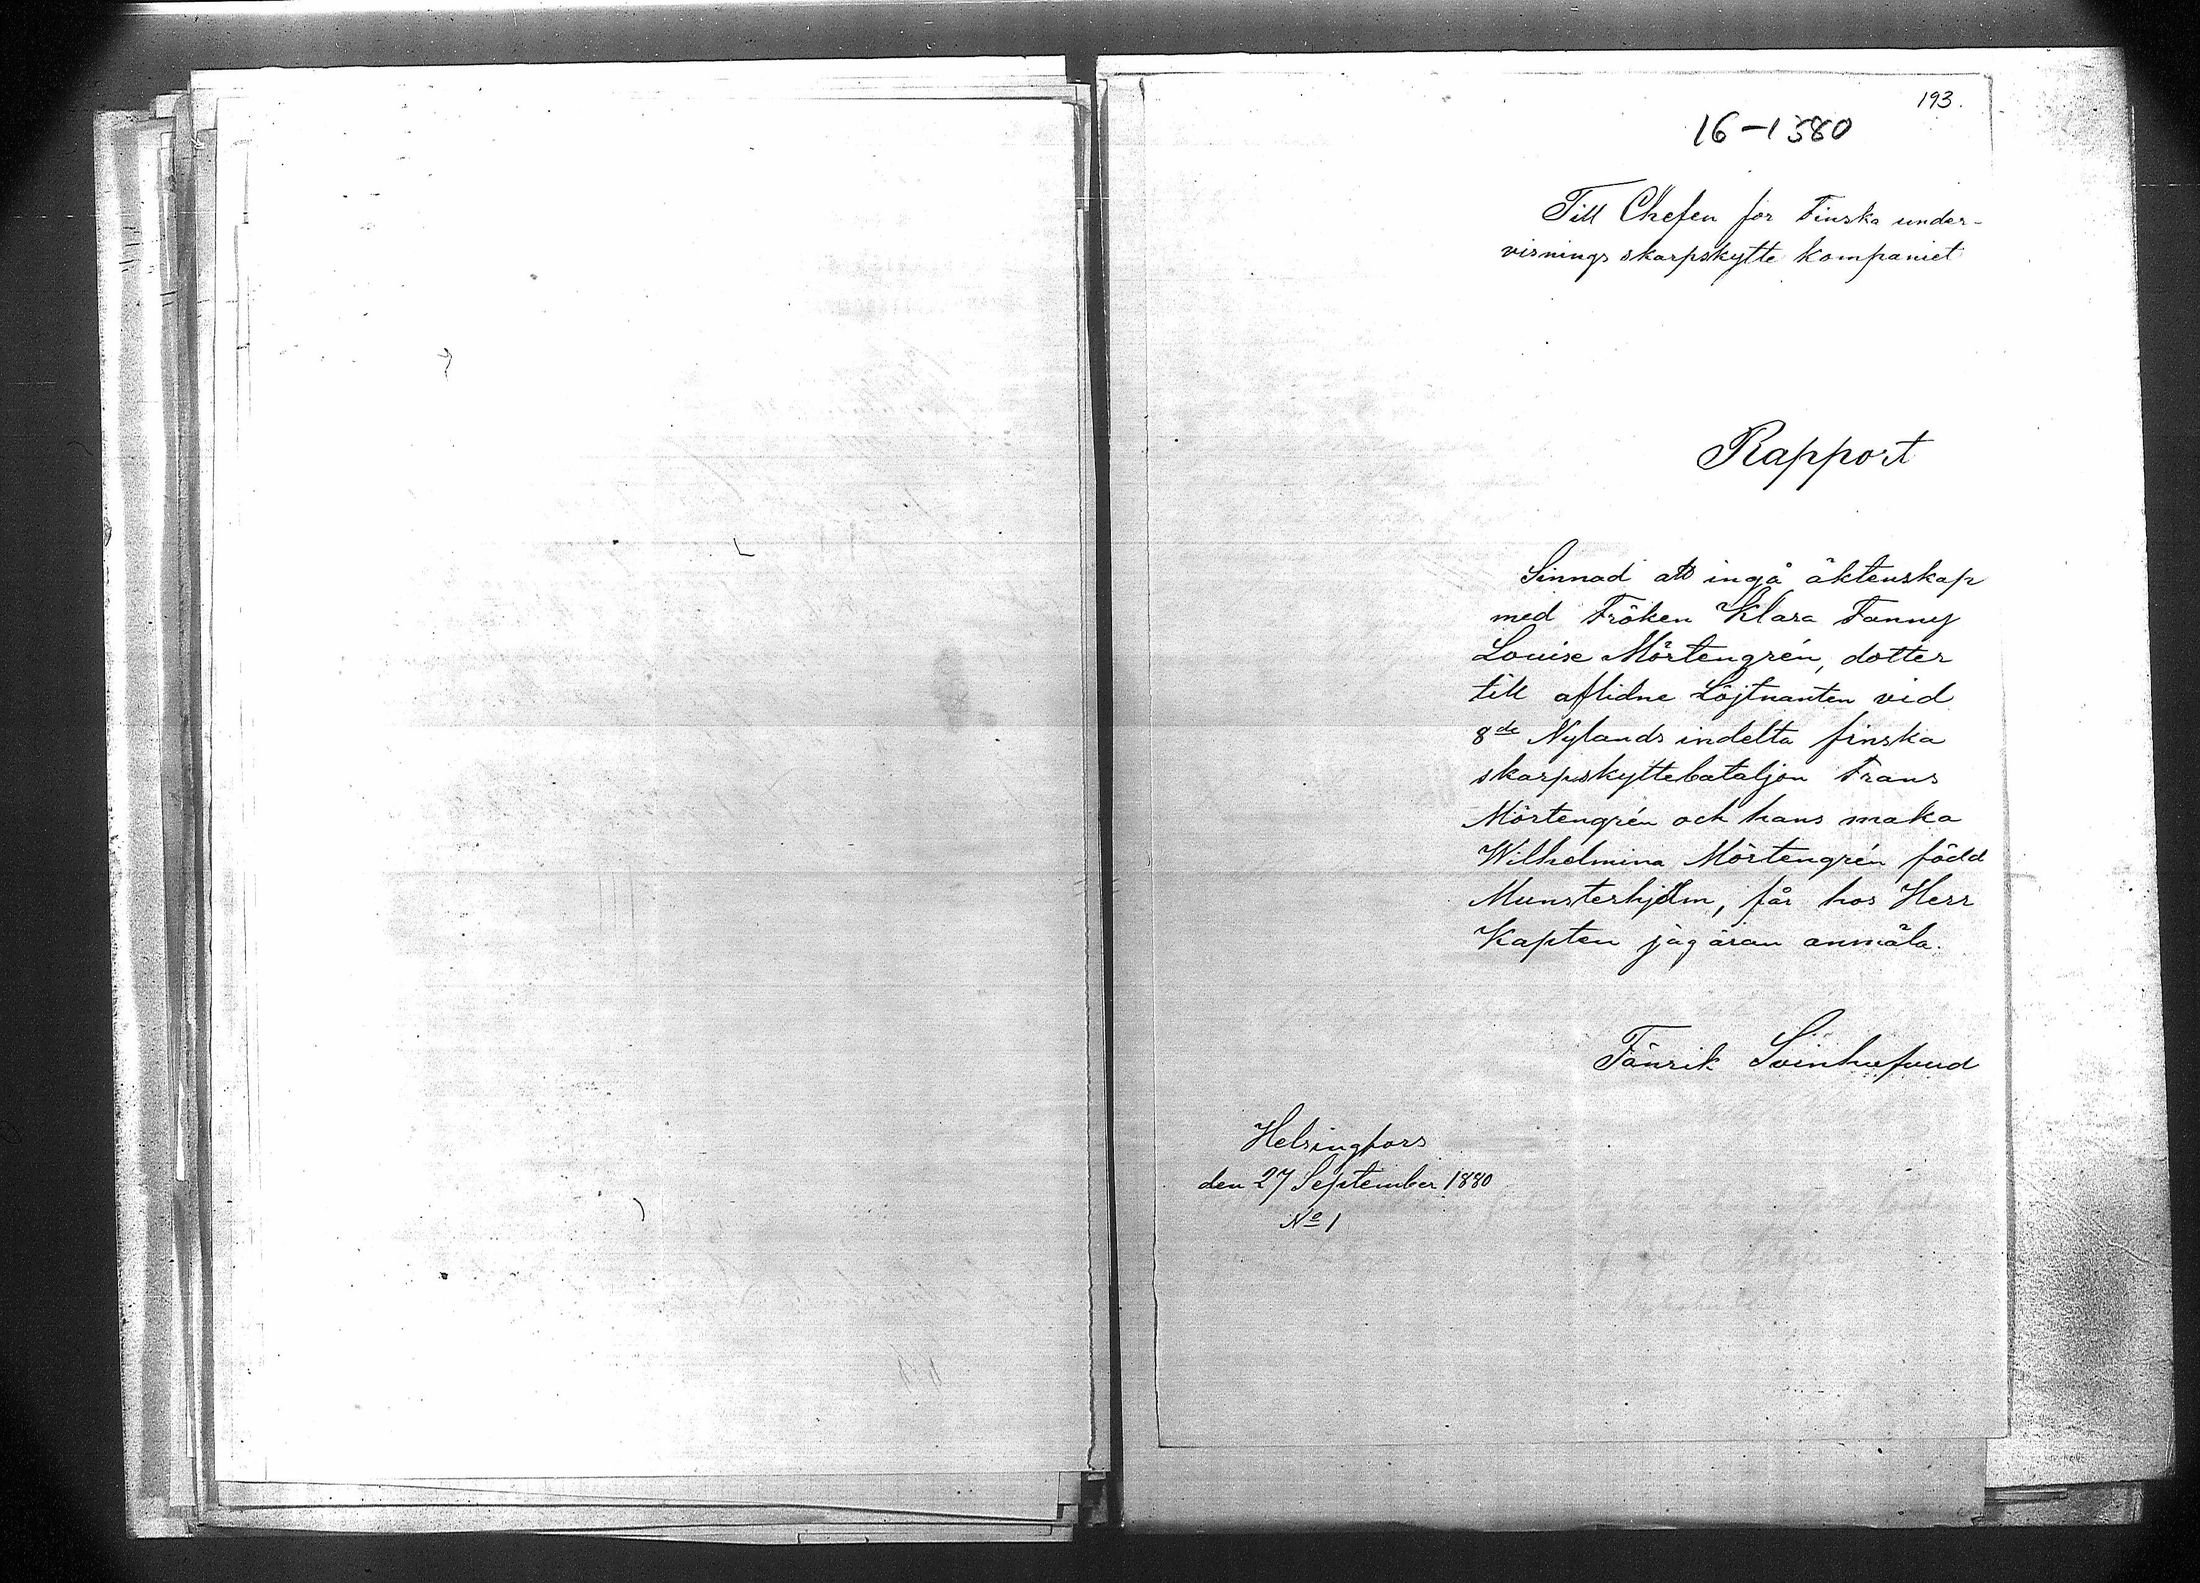 193.
16-1580
Till Chefen för Finska under-
visnings skarpskytte kompaniet
Rapport
Sinnad att ingå äktenskap
med Fröken Klara Fanny
Louise Mörtengrén, dotter
till aflidne Löjtnanten vid
8de Nylands indelta finska
skarpskyttebataljon Frans
Mörtengrén och hans maka
Wilhelmina Mörtengrén född
Munsterhjelm, får hos Herr
Kapten jag äran anmäla.
Fänrik Svinhufvud
Helsingfors
den 27 September 1880
No 1